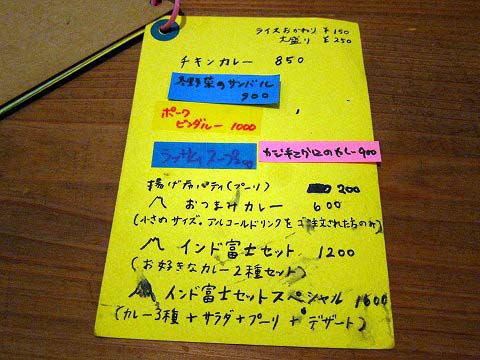 ライスおかわり ¥150
大盛り ¥250
チキンカレー 850
冬野菜のサンバル
900
ポーク
ビンダルー 1000
スープ
カジキとかにのカレー 900
揚げパティ(プーリ) 200
おつまみカレー 600
(小さめサイズ。アルコールドリンクをご注文された方のみ)
インド富士セット 1200
(お好きなカレー2種セット)
インド富士セットスペシャル 1600
(カレー3種+サラダ+プーリ+デザート)